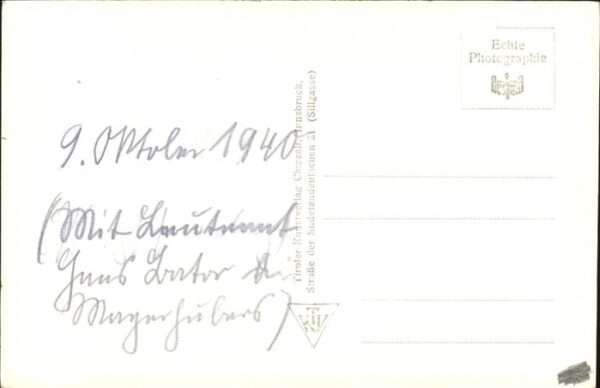 Echte
Photographie
9. Oktober 1940
(Mit Leutnant
Hans Bator
Mayerhubers)
Tiroler Kunstverlag Chizzali, Innsbruck,
Straße der Sudetendeutschen 21 (Sillgasse)